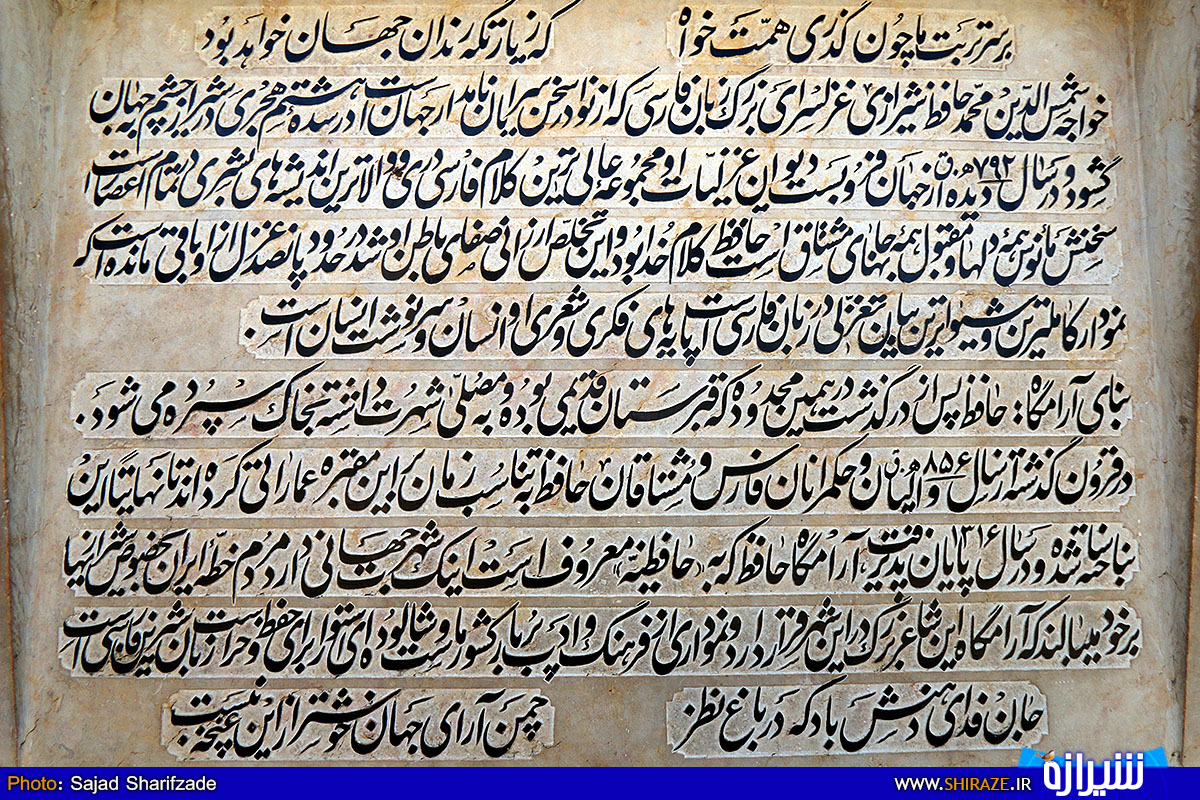 بر سر تربت ما چون گذری همت خواه که زیارتگه رندان جهان خواهد بود
خواجه شمس الدین محمد حافظ شیرازی غزلسرای بزرگ زبان فارسی که از نوادر سخن سرایان نامدار جهانست در سده هشتم هجری در شیراز چشم به جهان
گشود و در سال ۷۹۲ ه‍.ق دیده از جهان فرو بست دیوان غزلیات او مجموعه عالی ترین کلام فارسی دری و والاترین اندیشه های بشری در تمام اعصار است
سخنش مأنوس همه دلها و مقبول همه جانهای مشتاق است حافظ کلام خدا بود و این تخلص ارزانی صفای باطن او شد در حدود پانصد غزل از او باقی مانده است که
نمودار کاملترین و شیواترین بیان تغزلی در زبان فارسی است پایه های فکری و شعری او انسان و سرنوشت انسان است.
بنای آرامگاه: حافظ پس از درگذشت در همین محدوده که قبرستان قدیمی بوده و به مصلی شهرت داشته بخاک سپرده می شود.
در قرون گذشته از سال ۸۵۶ ه‍.ق والیان و حکمرانان فارس و مشتاقان حافظ به تناسب زمان بر این مقبره عماراتی کرده اند تا نهایتا این
بنا ساخته شده و در سال ۱۳۱۶ پایان پذیرفت، آرامگاه حافظ که به «حافظیه» معروف است اینک شهرت جهانی دارد مردم خطه ایران بخصوص شیرازیها
بر خود میبالند که آرامگاه این شاعر بزرگ در این شهر قرار دارد و نموداری از فرهنگ و ادب پربار کشور ماست و شالوده ای استوار برای حفظ و حراست زبان شیرین فارسی است
جان فدای دهنش باد که در باغ نظر چمن آرای جهان خوشتر از این غنچه نبست
Photo: Sajad Sharifzade
WWW.SHIRAZE.IR شیرازه